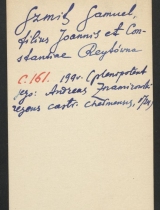 Szmit Samuel,
filius Joannis et Con-
stantiae Reytówna
C.161. 199v. (plenipotent
jego: Andreas Znamirowski
regens castr. chełmensis,